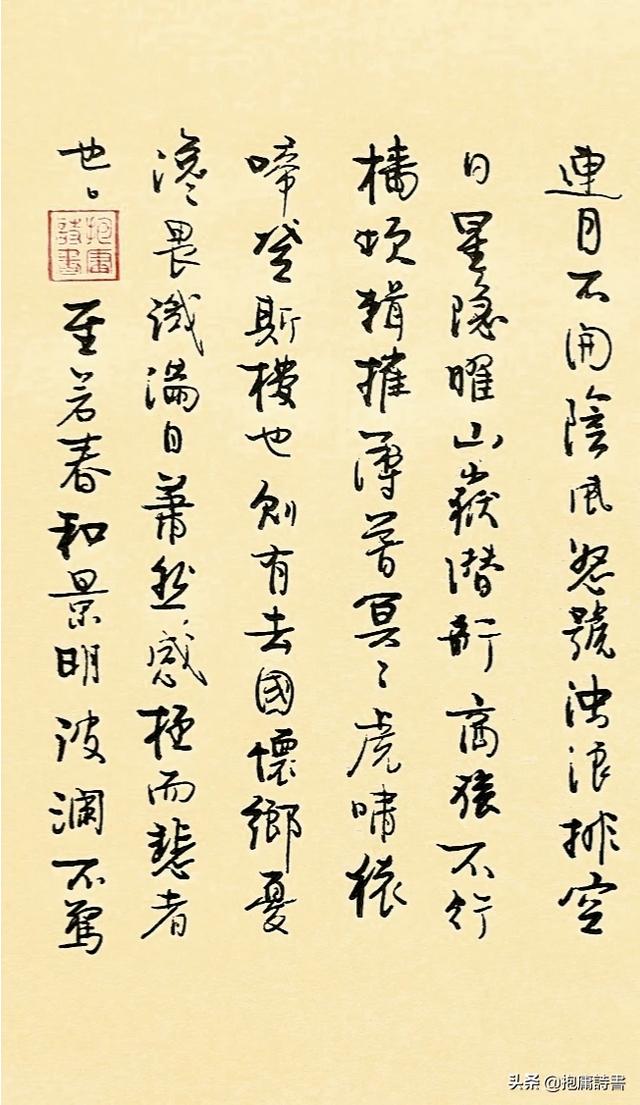 連月不開陰風怒號浊浪排空
日星隱曜山嶽潛形商旅不行
檣傾楫摧薄暮冥〻虎嘯猿
啼登斯樓也則有去國懷鄉憂
讒畏譏滿目蕭然感極而悲者
也 至若春和景明波瀾不驚
抱庸詩書
头条 @抱庸詩書